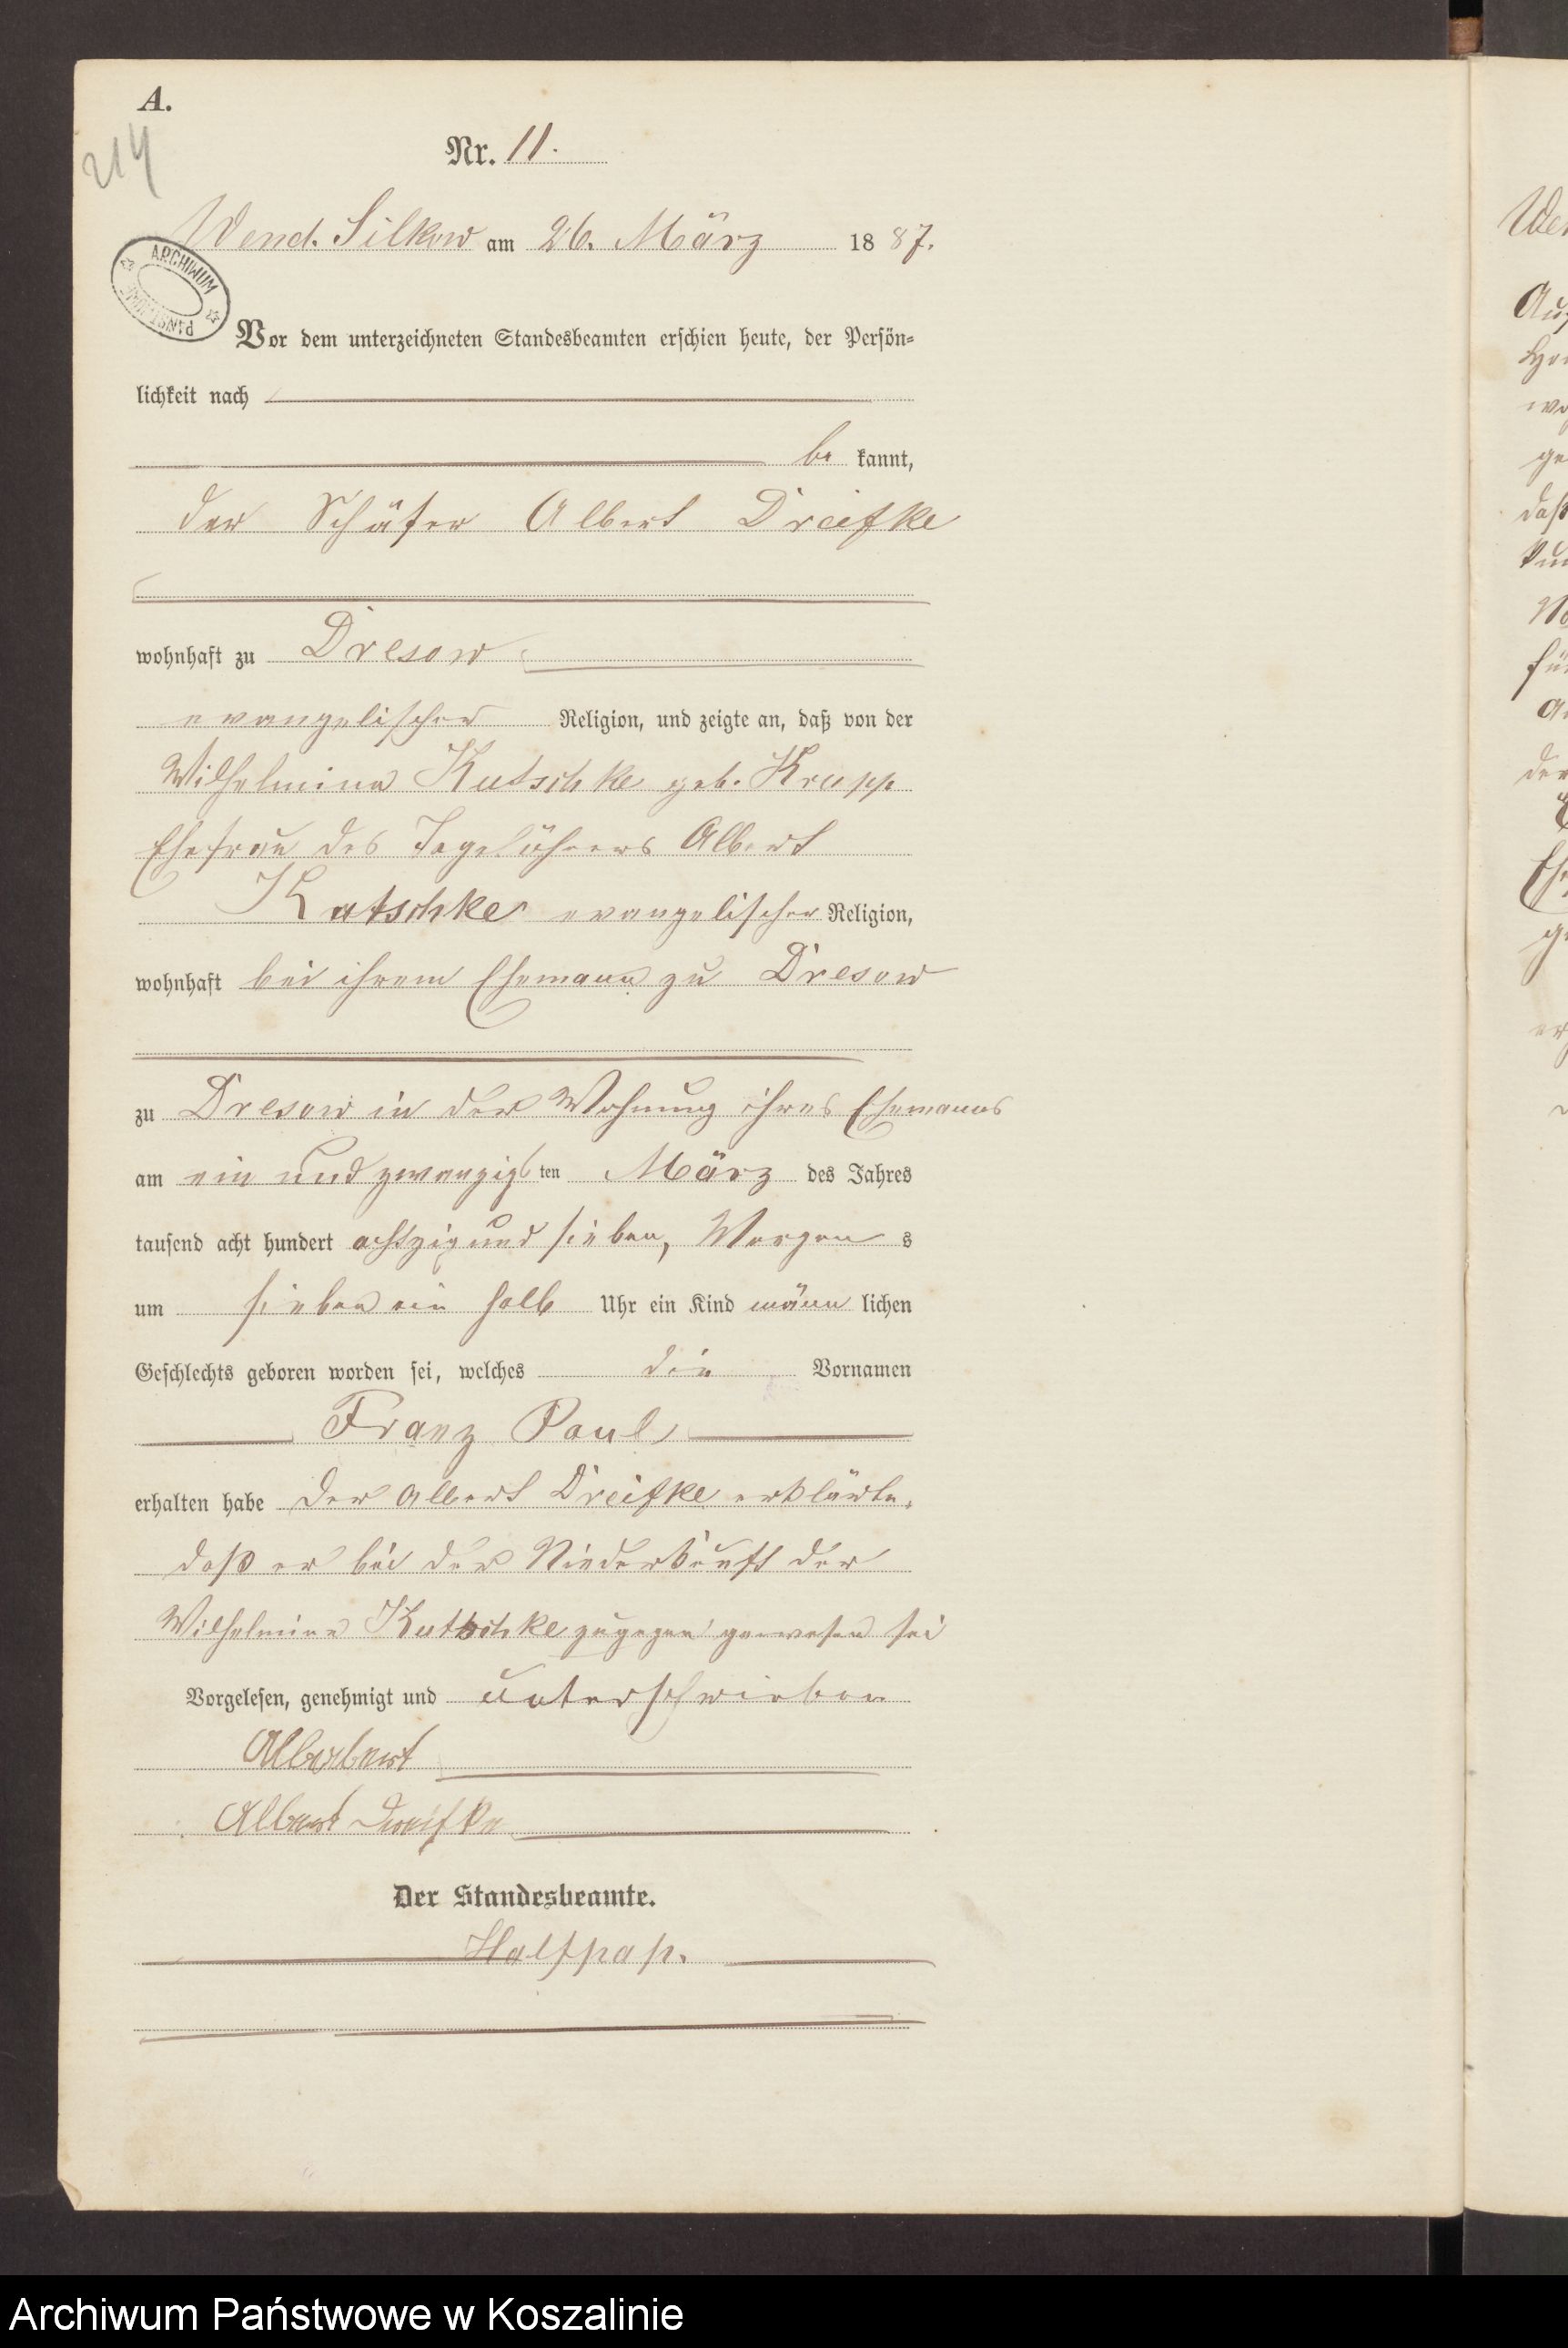 A.
214
Nr. 11.
Wend. Silkow am 26. März 1887.
ARCHIWUM
PAŃSTWOWE
Vor dem unterzeichneten Standesbeamten erschien heute, der Persön-
lichkeit nach
bekannt,
der Schäfer Albert Dreifke
wohnhaft zu Dresow
evangelischer Religion, und zeigte an, daß von der
Wilhelmine Kutschke geb. Krupp
Ehefrau des Tagelöhners Albert
Kutschke evangelischer Religion,
wohnhaft bei ihrem Ehemann zu Dresow
zu Dresow in der Wohnung ihres Ehemanns
am ein und zwanzigsten März des Jahres
tausend acht hundert achtzig und sieben, Morgens
um sieben ein halb Uhr ein Kind männlichen
Geschlechts geboren worden sei, welches die Vornamen
Franz Paul
erhalten habe der Albert Dreifke erklärte,
daß er bei der Niederkunft der
Wilhelmine Kutschke zugegen gewesen sei
Vorgelesen, genehmigt und unterschrieben
Albert Dreifke
Der Standesbeamte.
Halfpap.
Archiwum Państwowe w Koszalinie